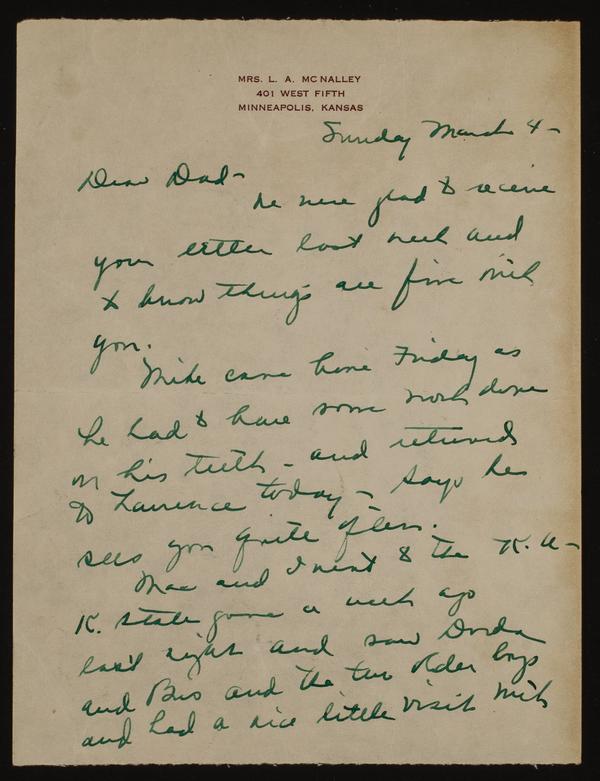 MRS. L. A. MCNALLEY
401 WEST FIFTH
MINNEAPOLIS, KANSAS
Sunday March 4-
Dear Dad-
We were glad to receive
your letter last week and
to know things are fine with
you.
Mike came home Friday as
he had to have some work done
on his teeth - and returned
to Lawrence today - says he
sees you quite often.
Mac and I went to the K.U-
K. State game a week ago
last night and saw
and Bus and the two older boys
and had a nice little visit with